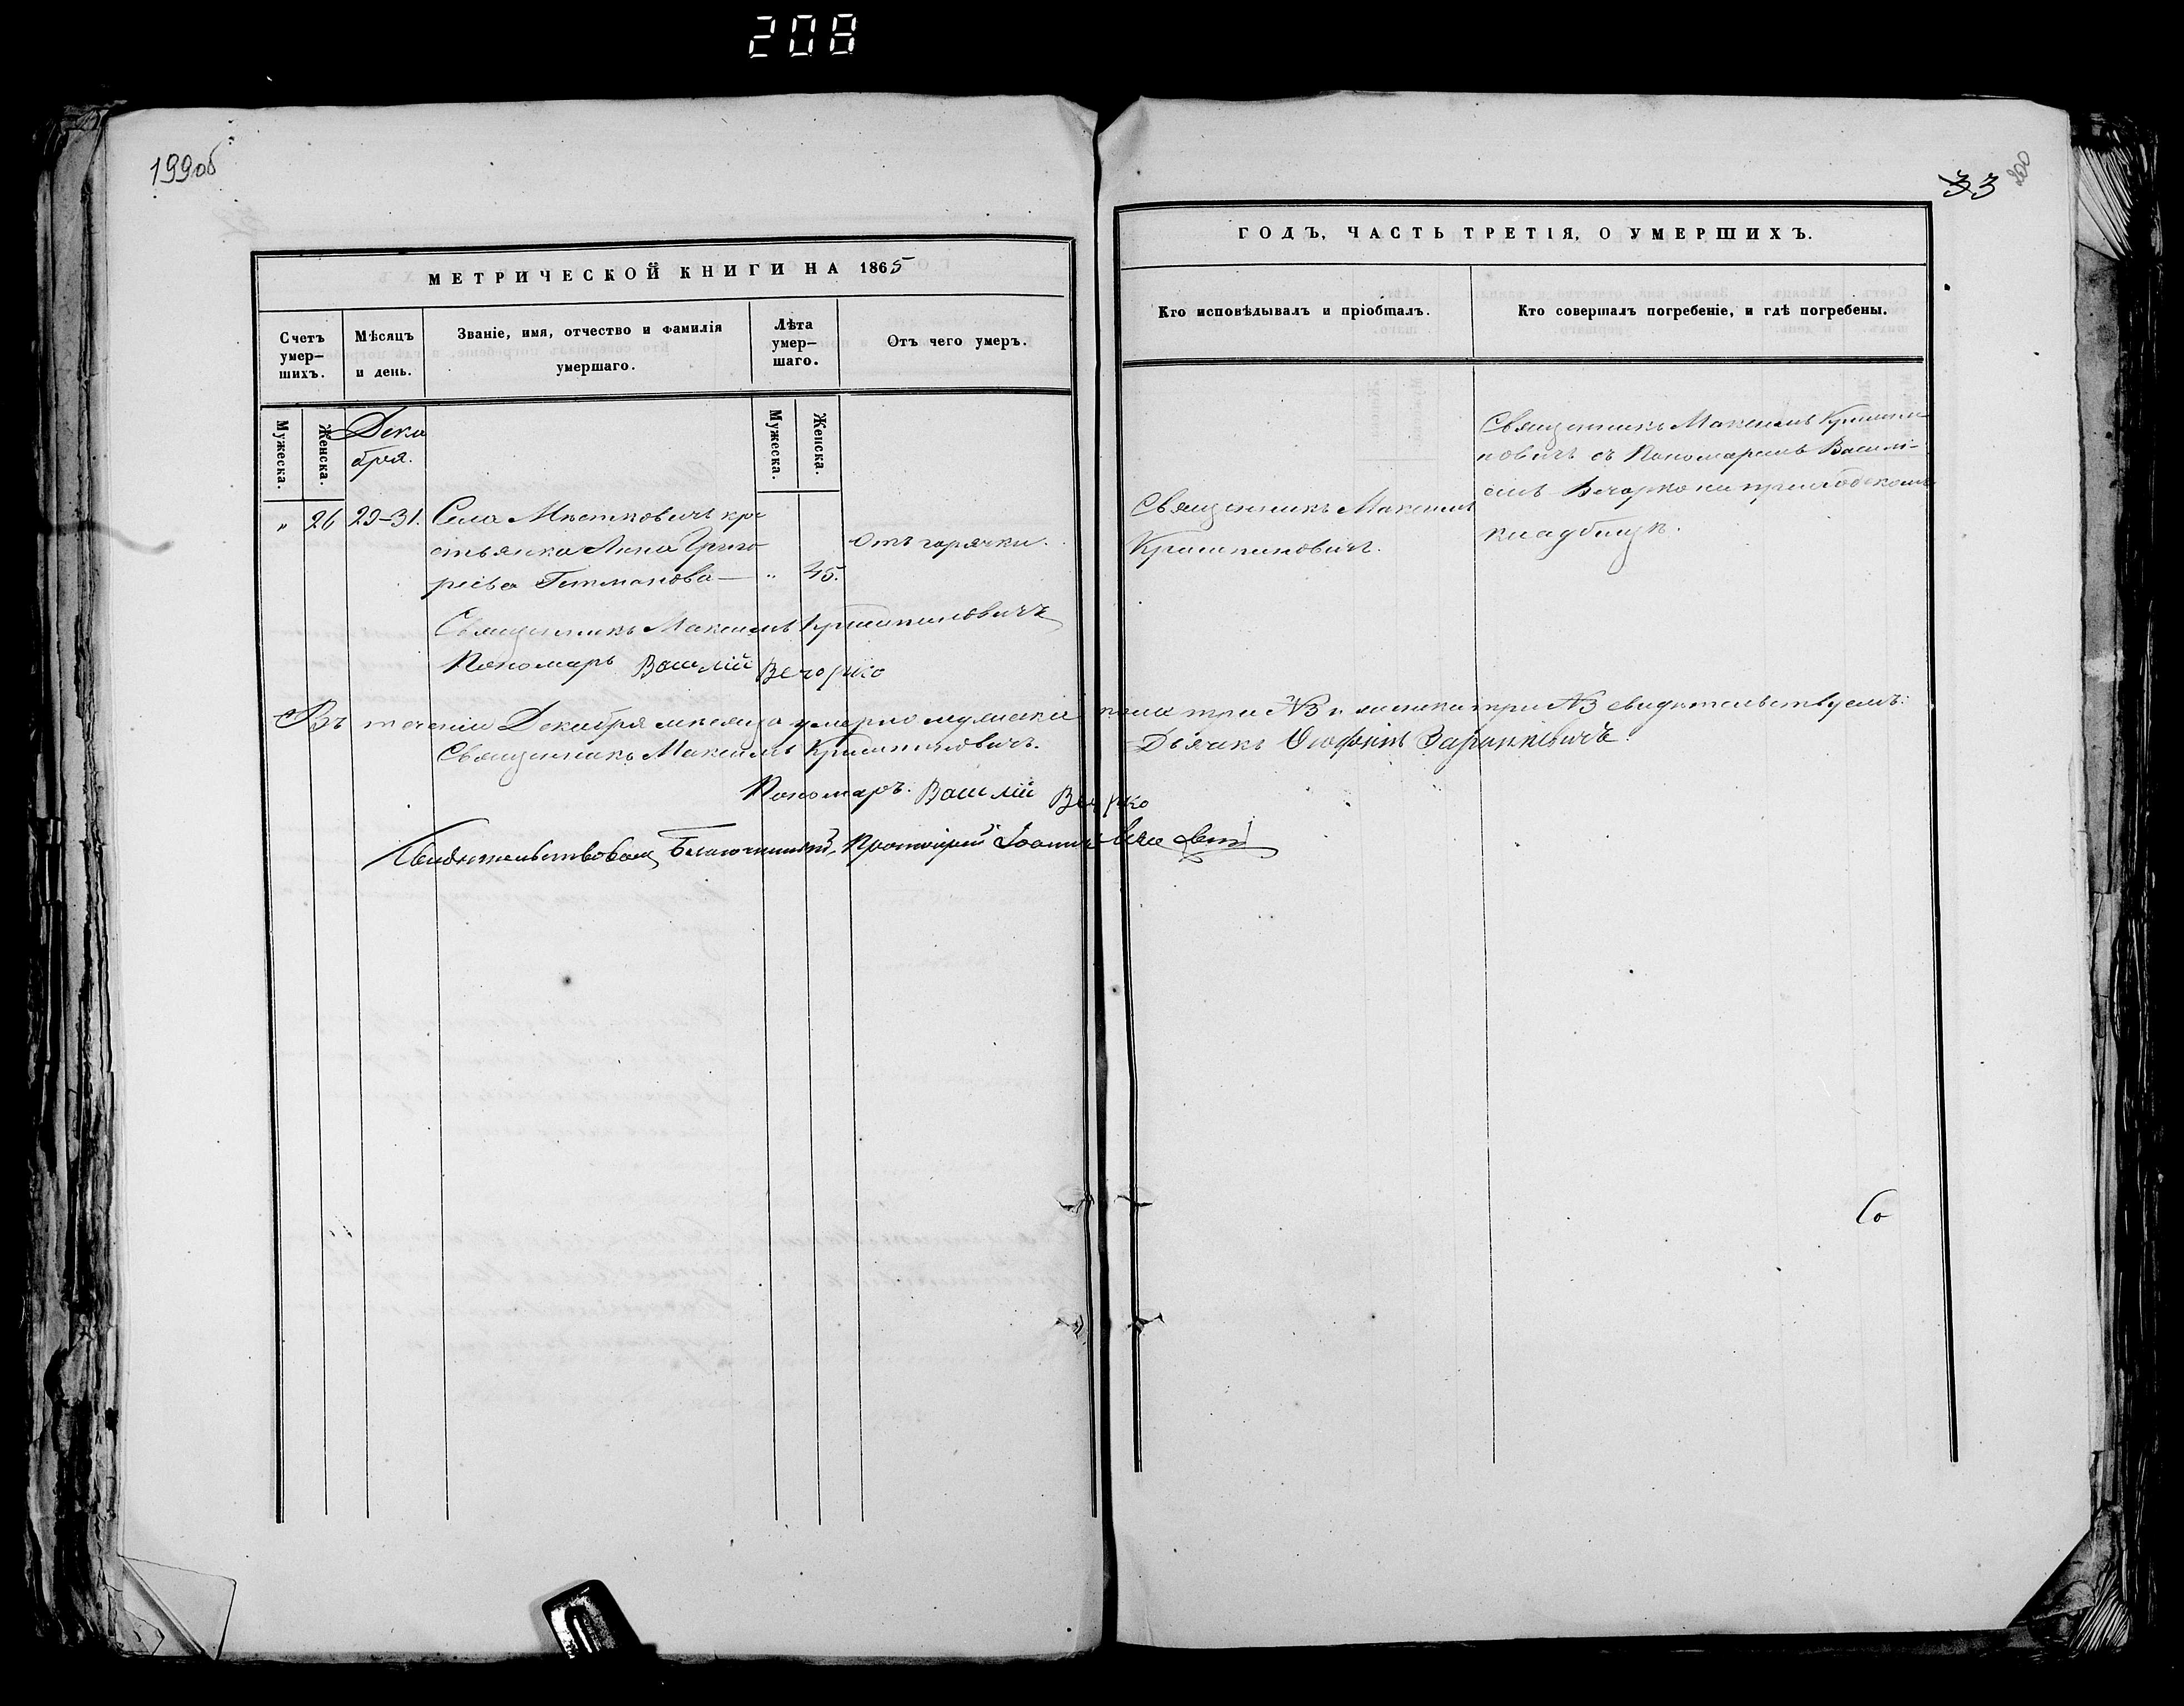 208
199об
33
200
МЕТРИЧЕСКОЙ КНИГИ НА 1865
ГОДЪ, ЧАСТЬ ТРЕТІЯ, О УМЕРШИХЪ.
Счетъ умер–шихъ.
Мѣсяцъ и день.
Званіе, имя, отчество и фамилія умершаго.
Лѣта умер–шаго.
Отъ чего умеръ.
Кто исповѣдывалъ и пріобщалъ.
Кто совершалъ погребеніе, и гдѣ погребены.
Мужеска.
Женска.
Дека
бря.
Мужеска.
Женска.
„ 26 29–31. Села Мѣтковичъ кре
стьянка Анна Григо
рьева Гетманова — „ 45.
Отъ горячки.
Священникъ Максимъ
Священникъ Максимъ
новичъ съ Пономаремъ Васили-
емъ Вечорко на приходскомъ
кладбищѣ.
Священникъ Максимъ
Пономарь Василій Вечорко
Въ теченіи Декабря мѣсяца умерло мужеска пола три №3 и женска три №3 свидѣтельствуемъ:
Священникъ Максимъ
Дьячекъ
Пономарь Василій Вечорко
Свидѣтельствовалъ Благочинный, Протоіерей Іоаннъ